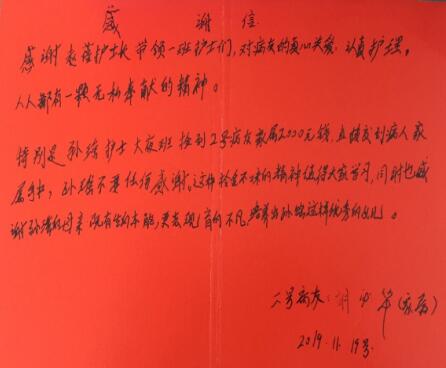 感谢信
感谢赵蓓护士长带领一班护士们,对病友的真心关爱,认真护理。
人人都有一颗无私奉献的精神。
特别是孙瑶护士大夜班捡到2号病友家属2000元钱,立马交到病人家
属手中,孙瑶不要任何感谢,这种拾金不昧的精神值得大家学习,同时也感
谢孙瑶的母亲既有生的本能,更表现育的不凡,培养出孙瑶这样优秀的女儿。
二号病友:胡 华(家属)
2019.11.19号.